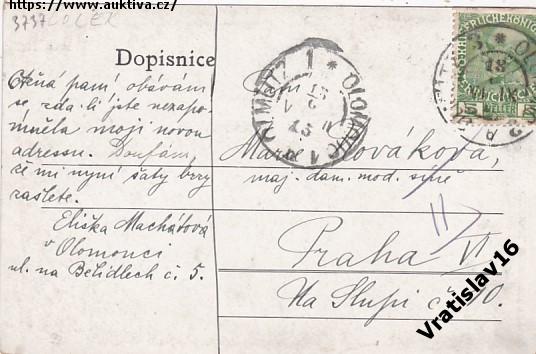 https://www.auktiva.cz/
3737 OLEK
Dopisnice
Ctěná paní obávám
se, zda-li jste nezapo-
mněla moji novou
adressu. Doufám,
že mi nyní šaty brzy
zašlete.
Eliška Machátová
v Olomouci
ul. na Bělidlech č. 5.
OLMÜTZ 1 * OLOMOUC 1
13
HELLER
5
Marie Nováková,
maj. dam. mod. síně
Praha VI
Na Slupi č. 10.
11
Vratislav16